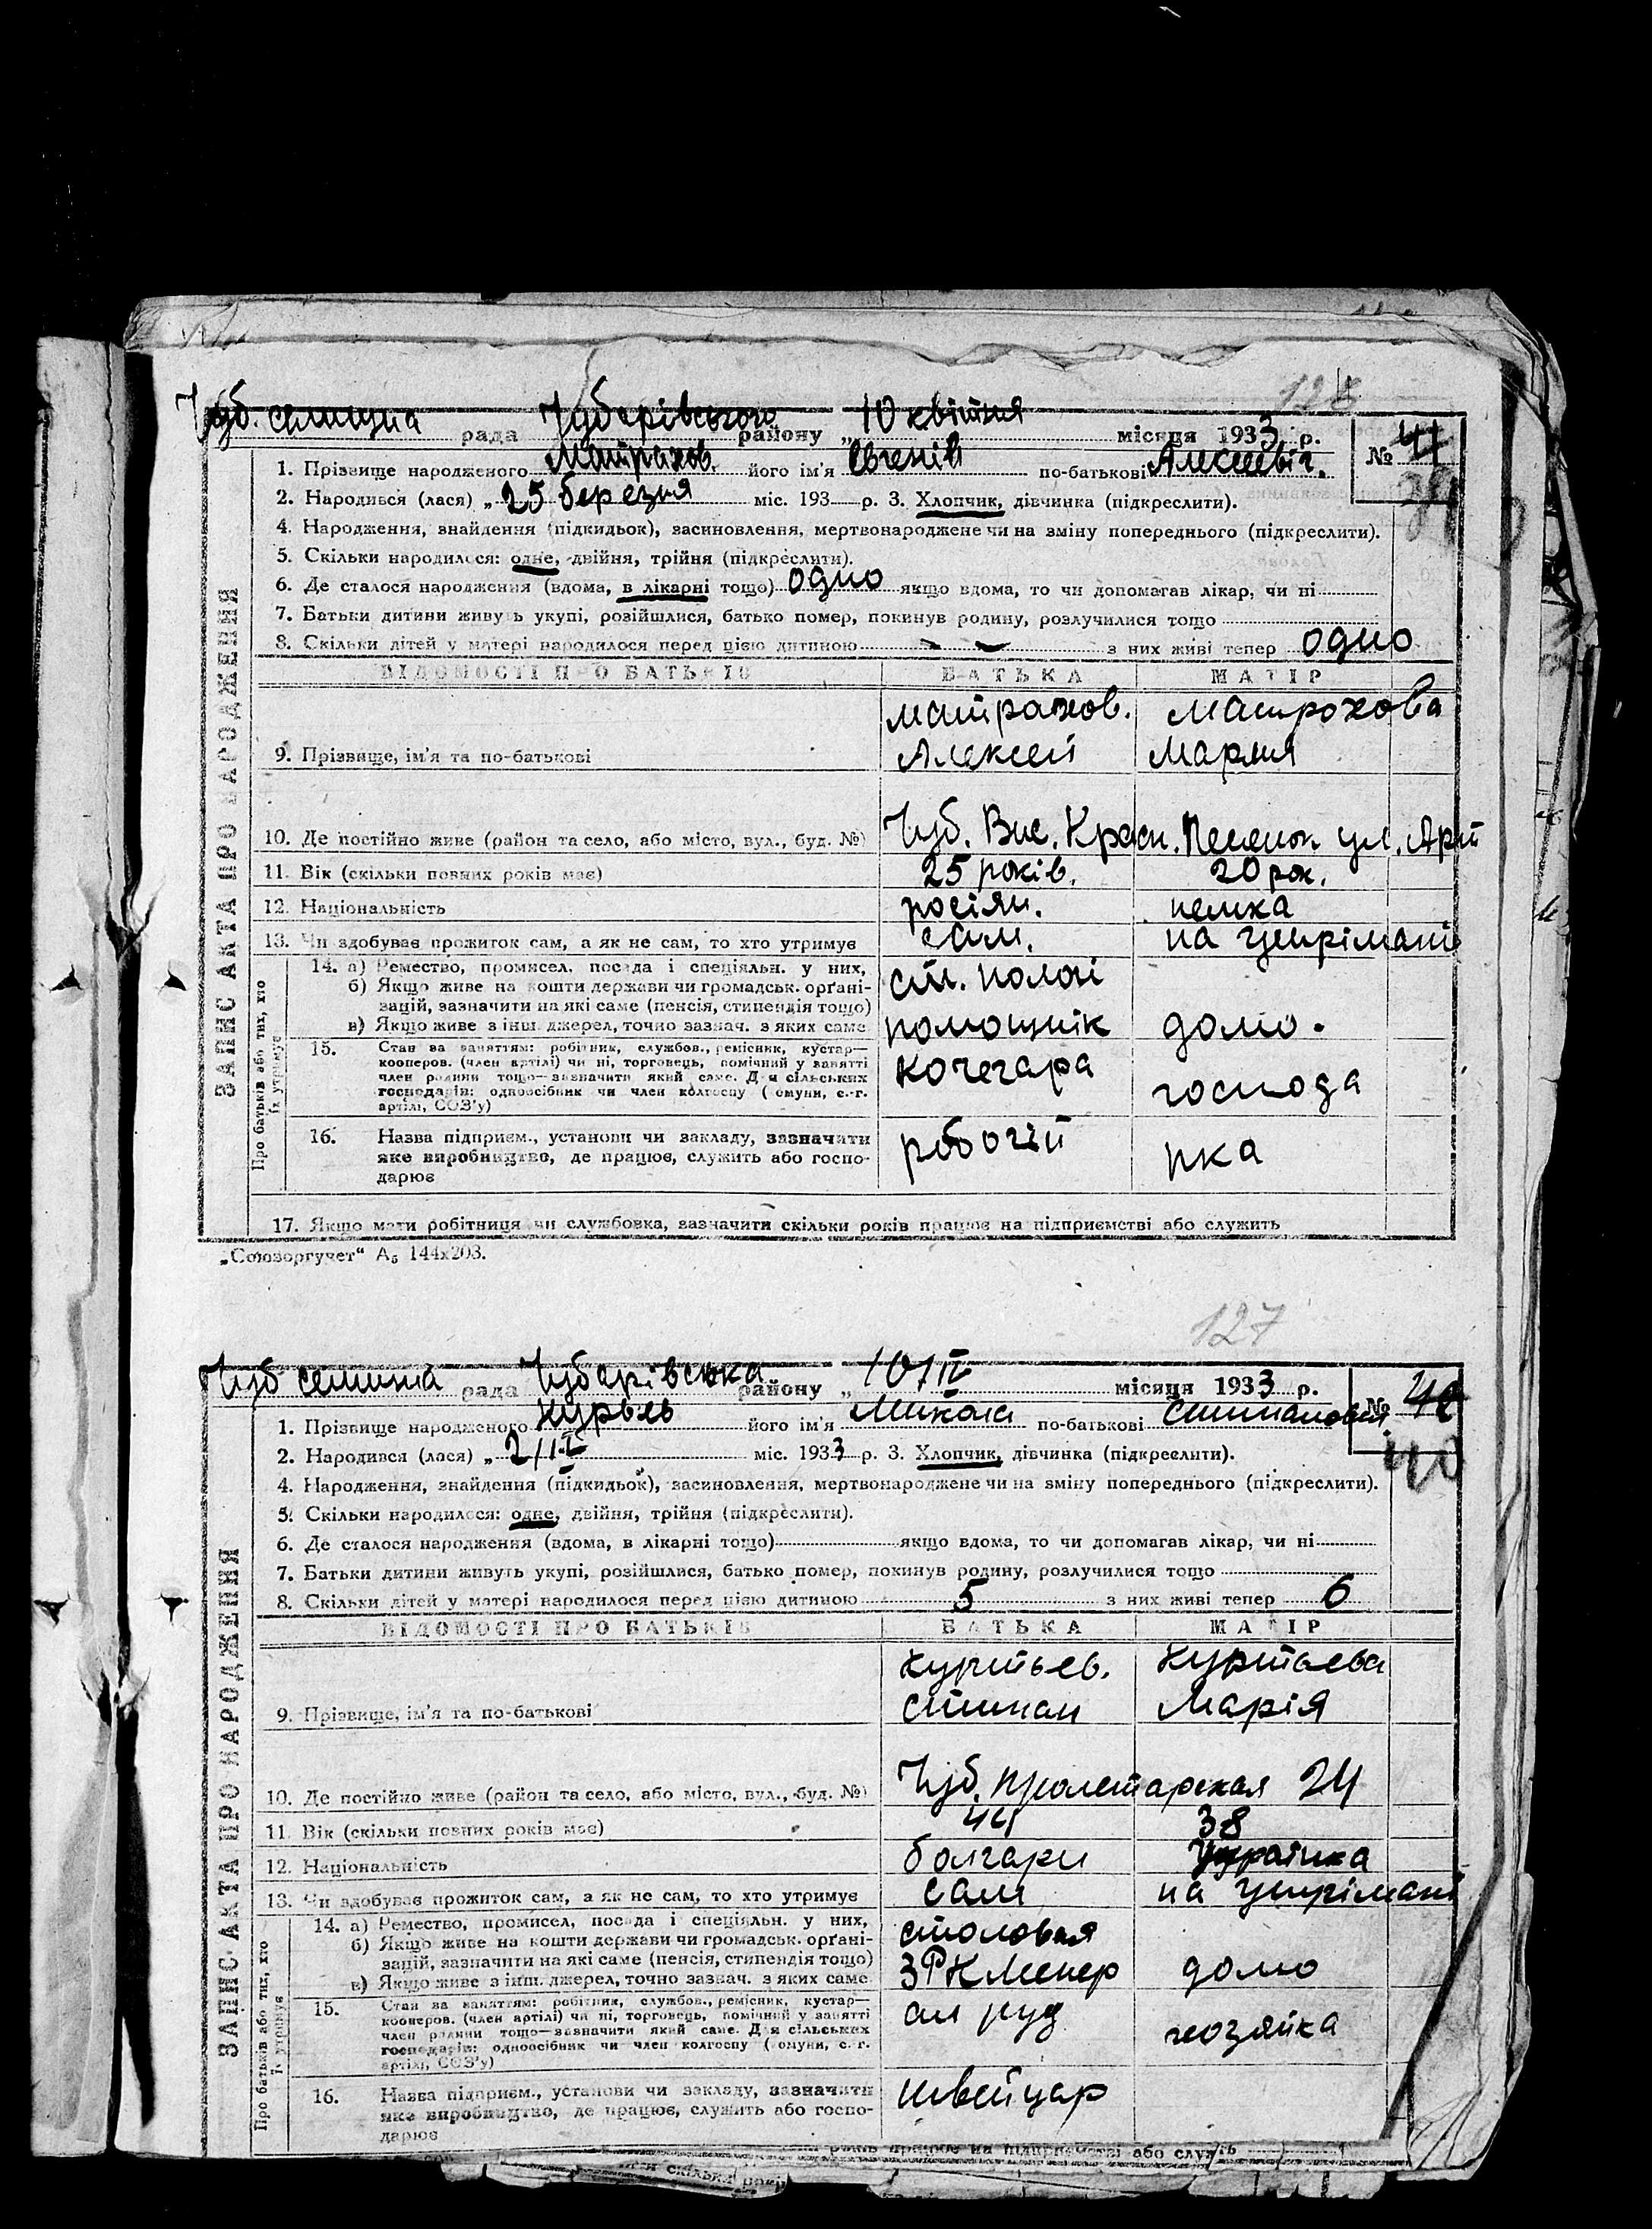 128
Чуб. селищна рада Чубарівського району „ 10 квітня місяця 1933 р.
№ 41
1. Прізвище народженого Матрахов. його ім'я Евгенів по-батькові Алексеевіч.
2. Народився (лася) „ 25 березня міс. 193 р. 3. Хлопчик, дівчинка (підкреслити).
4. Народження, знайдення (підкидьок), засиновлення, мертвонароджене чи на зміну попереднього (підкреслити).
5. Скільки народилося: одне, двійня, трійня (підкреслити).
6. Де сталося народження (вдома, в лікарні тощо) одно якщо вдома, то чи допомагав лікар, чи ні
7. Батьки дитини живуть укупі, розійшлися, батько помер, покинув родину, розлучилися тощо
8. Скільки дітей у матері народилося перед цією дитиною - - з них живі тепер одно
ЗАПИС АКТА ПРО НАРОДЖЕННЯ
ВІДОМОСТІ ПРО БАТЬКІВ БАТЬКА МАТІР
Матрахов. Матрохова
9. Прізвище, ім'я та по-батькові Алексей Мария
10. Де постійно живе (район та село, або місто, вул., буд. №) Чуб. Вис. Красн. ул. Арт
11. Вік (скільки повних років має) 25 років. 20 рок.
12. Національність росіян. немка
13. Чи здобуває прожиток сам, а як не сам, то хто утримує сам. на утрімані
Про батьків або тих, хто їх утримує
14. а) Ремество, промисел, посада і спеціяльн. у них,
б) Якщо живе на кошти держави чи громадськ. орґані-
зацій, зазначити на які саме (пенсія, стипендія тощо)
в) Якщо живе з інш. джерел, точно зазнач. з яких саме
ст. пологі
помощнік домо.
15. Стан за заняттям: робітник, службов., ремісник, кустар—
кооперов. (член артілі) чи ні, торговець, помічний у занятті
член родини тощо—зазначити який саме. Для сільських
господарів: одноосібник чи член колгоспу (комуни, с.-г.
артілі, СОЗ'у)
кочегара господа
16. Назва підприєм., установи чи закладу, зазначити
яке виробництво, де працює, служить або госпо-
дарює
робочій рка
17. Якщо мати робітниця чи службовка, зазначити скільки років працює на підприємстві або служить
„Союзоргучет“ А₅ 144х203.
127
Чуб селищна рада Чубарівська району „ 10/IV місяця 1933 р.
№ 42
1. Прізвище народженого його ім'я Микола по-батькові
40
2. Народився (лася) „ міс. 1933 р. 3. Хлопчик, дівчинка (підкреслити).
4. Народження, знайдення (підкидьок), засиновлення, мертвонароджене чи на зміну попереднього (підкреслити).
5. Скільки народилося: одне, двійня, трійня (підкреслити).
6. Де сталося народження (вдома, в лікарні тощо) якщо вдома, то чи допомагав лікар, чи ні
7. Батьки дитини живуть укупі, розійшлися, батько помер, покинув родину, розлучилися тощо
8. Скільки дітей у матері народилося перед цією дитиною 5 з них живі тепер 6
ЗАПИС АКТА ПРО НАРОДЖЕННЯ
ВІДОМОСТІ ПРО БАТЬКІВ БАТЬКА МАТІР
Куртьев. Куртьева
9. Прізвище, ім'я та по-батькові Стипан Марія
10. Де постійно живе (район та село, або місто, вул., буд. №) Чуб. Пролетарская 24
11. Вік (скільки повних років має) 44 38
12. Національність болгари Українка
13. Чи здобуває прожиток сам, а як не сам, то хто утримує сам на утрімані
Про батьків або тих, хто їх утримує
14. а) Ремество, промисел, посада і спеціяльн. у них,
б) Якщо живе на кошти держави чи громадськ. орґані-
зацій, зазначити на які саме (пенсія, стипендія тощо)
в) Якщо живе з інш. джерел, точно зазнач. з яких саме
столовая
ЗРК Минер домо
15. Стан за заняттям: робітник, службов., ремісник, кустар—
кооперов. (член артілі) чи ні, торговець, помічний у занятті
член родини тощо—зазначити який саме. Для сільських
господарів: одноосібник чи член колгоспу (комуни, с.-г.
артілі, СОЗ'у)
ал руд хозяйка
16. Назва підприєм., установи чи закладу, зазначити
яке виробництво, де працює, служить або госпо-
дарює
швейцар
років працює на підприємстві або служить